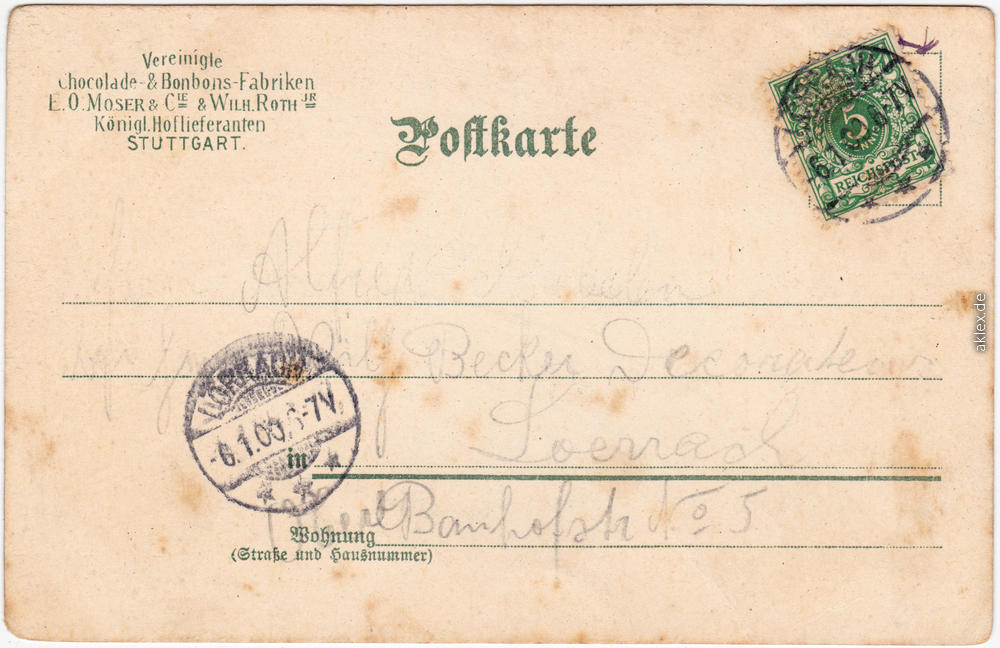 Vereinigte
Chocolade- & Bonbons-Fabriken
E.O. MOSER & CIE & WILH. ROTH JR
Königl. Hoflieferanten
STUTTGART.
Postkarte
5
REICHSPOST
Herrn Alfred
Becker Decorateur
LÖRRACH
6.1.00. 6-7N
in
Loerrach
Wohnung
Banhofstr No 5
(Straße und Hausnummer)
aklex.de